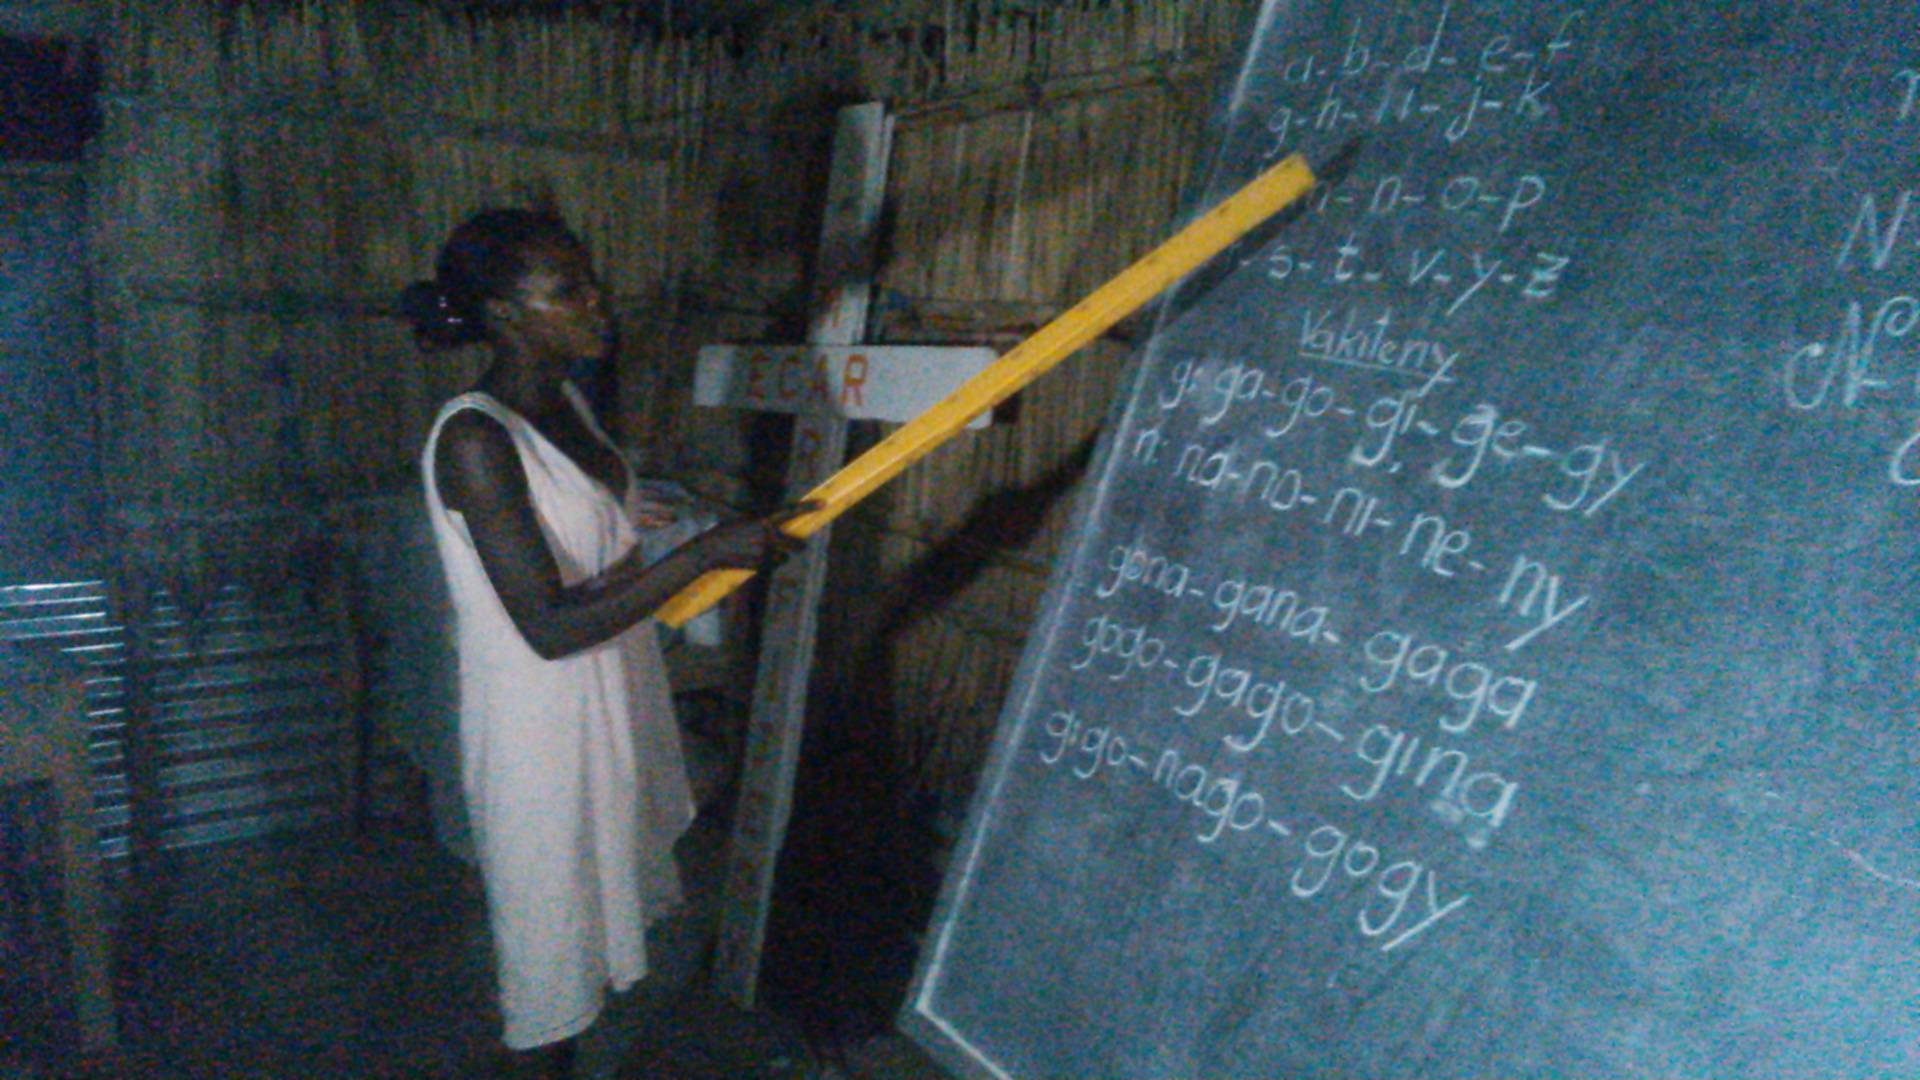 ECAR
a-b-d-e-f
g-h-i-j-k
n-o-p
s-t-v-y-z
Vakiteny
g: ga-go-gi-ge-gy
n: na-no-ni-ne-ny
gona-gana-gaga
gogo-gago-gina
gigo-nago-gogy
N
N